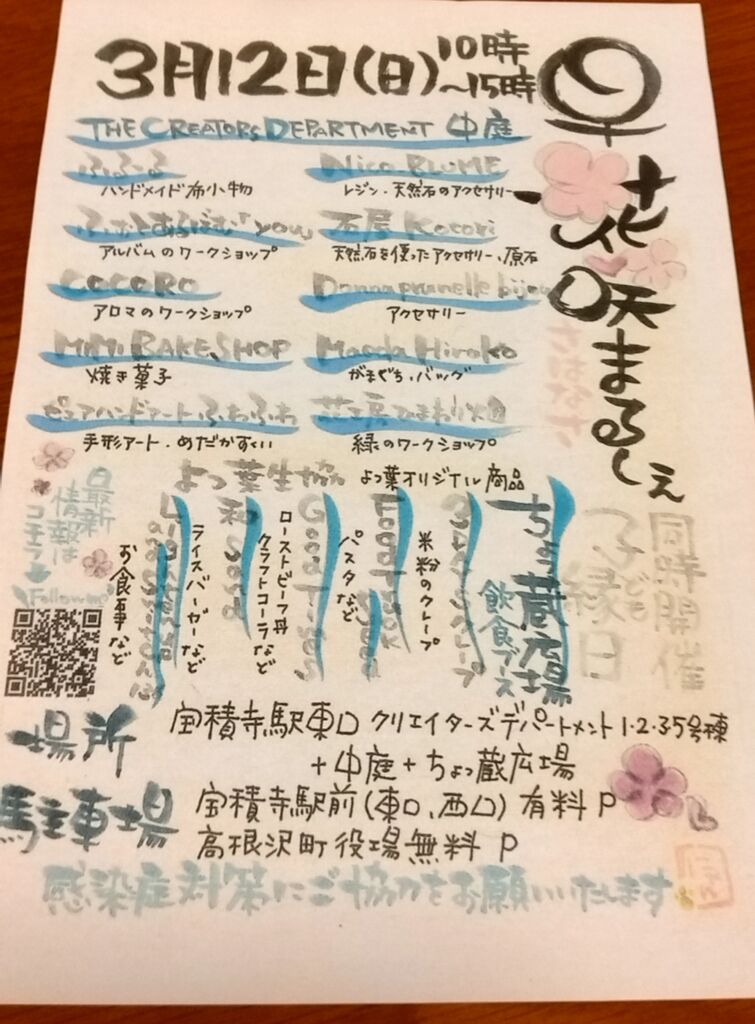 3月12日(日) 10時
~15時
花咲まるしぇ
THE CREATORS DEPARTMENT 中庭
ふふーる
ハンドメイド布小物
Nico BLUME
レジン・天然石のアクセサリー
アルバムのワークショップ
石屋 Kotori
天然石を使ったアクセサリー、原石
COCORO
アロマのワークショップ
Donnaprunelle bijou
アクセサリー
MiMi BAKE SHOP
焼き菓子
Maeda Hiroko
がまぐち、バッグ
ピュアハンドアートふわふわ
手形アート・めだかすくい
花工房ひまわり畑
緑のワークショップ
よつ葉生協 よつ葉オリジナル商品
同時開催
子ども
縁日
ちょっ蔵広場
飲食ブース
米粉のクレープ
パスタなど
Good Times
ローストビーフ丼
クラフトコーラなど
ライスバーガーなど
お食事など
最新
情報は
コチラ
場所 宝積寺駅東口 クリエイターズデパートメント 1・2・3・5号棟
+中庭+ちょっ蔵広場
駐車場 宝積寺駅前(東口、西口) 有料 P
高根沢町役場無料 P
感染症対策にご協力をお願いいたします